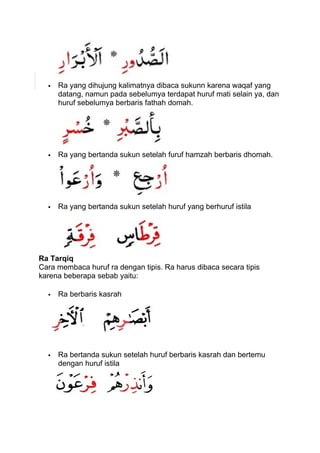 الصُّدُورِ * ٱلۡأَبۡرَارِ
• Ra yang dihujung kalimatnya dibaca sukunn karena waqaf yang
datang, namun pada sebelumya terdapat huruf mati selain ya, dan
huruf sebelumya berbaris fathah domah.
بِٱلصَّبۡرِ * خُسۡرٍ
• Ra yang bertanda sukun setelah furuf hamzah berbaris dhomah.
ٱرۡجِعِ * وَٱرۡعَوۡا۟
• Ra yang bertanda sukun setelah huruf yang berhuruf istila
قِرۡطَاسٍ فِرۡقَةٍ
Ra Tarqiq
Cara membaca huruf ra dengan tipis. Ra harus dibaca secara tipis
karena beberapa sebab yaitu:
• Ra berbaris kasrah
أَبۡصَـٰرِهِمۡ ٱلۡأٓخِرِ
• Ra bertanda sukun setelah huruf berbaris kasrah dan bertemu
dengan huruf istila
وَأَنذِرۡهُمۡ فِرۡعَوۡنَ